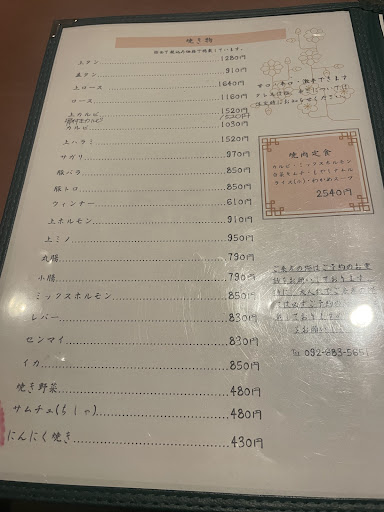 焼き物
上タン 1280円
並タン 910円
上ロース 1640円
ロース 1160円
上カルビ 1520円
骨付きカルビ 1520円
カルビ 1030円
上ハラミ 1520円
サガリ 970円
豚バラ 850円
豚トロ 850円
ウィンナー 610円
上ホルモン 910円
上ミノ 950円
丸腸 790円
小腸 790円
ミックスホルモン 850円
レバー 830円
センマイ 830円
イカ 850円
焼き野菜 480円
サムチュ(ちしゃ) 480円
にんにく焼き 430円
焼肉定食
カルビ・ミックスホルモン
白菜キムチ・もやしナムル
ライス(小)・わかめスープ
2540円
ご来店の際はご予約のお電
話をお願いしております
Tel 092-883-5651